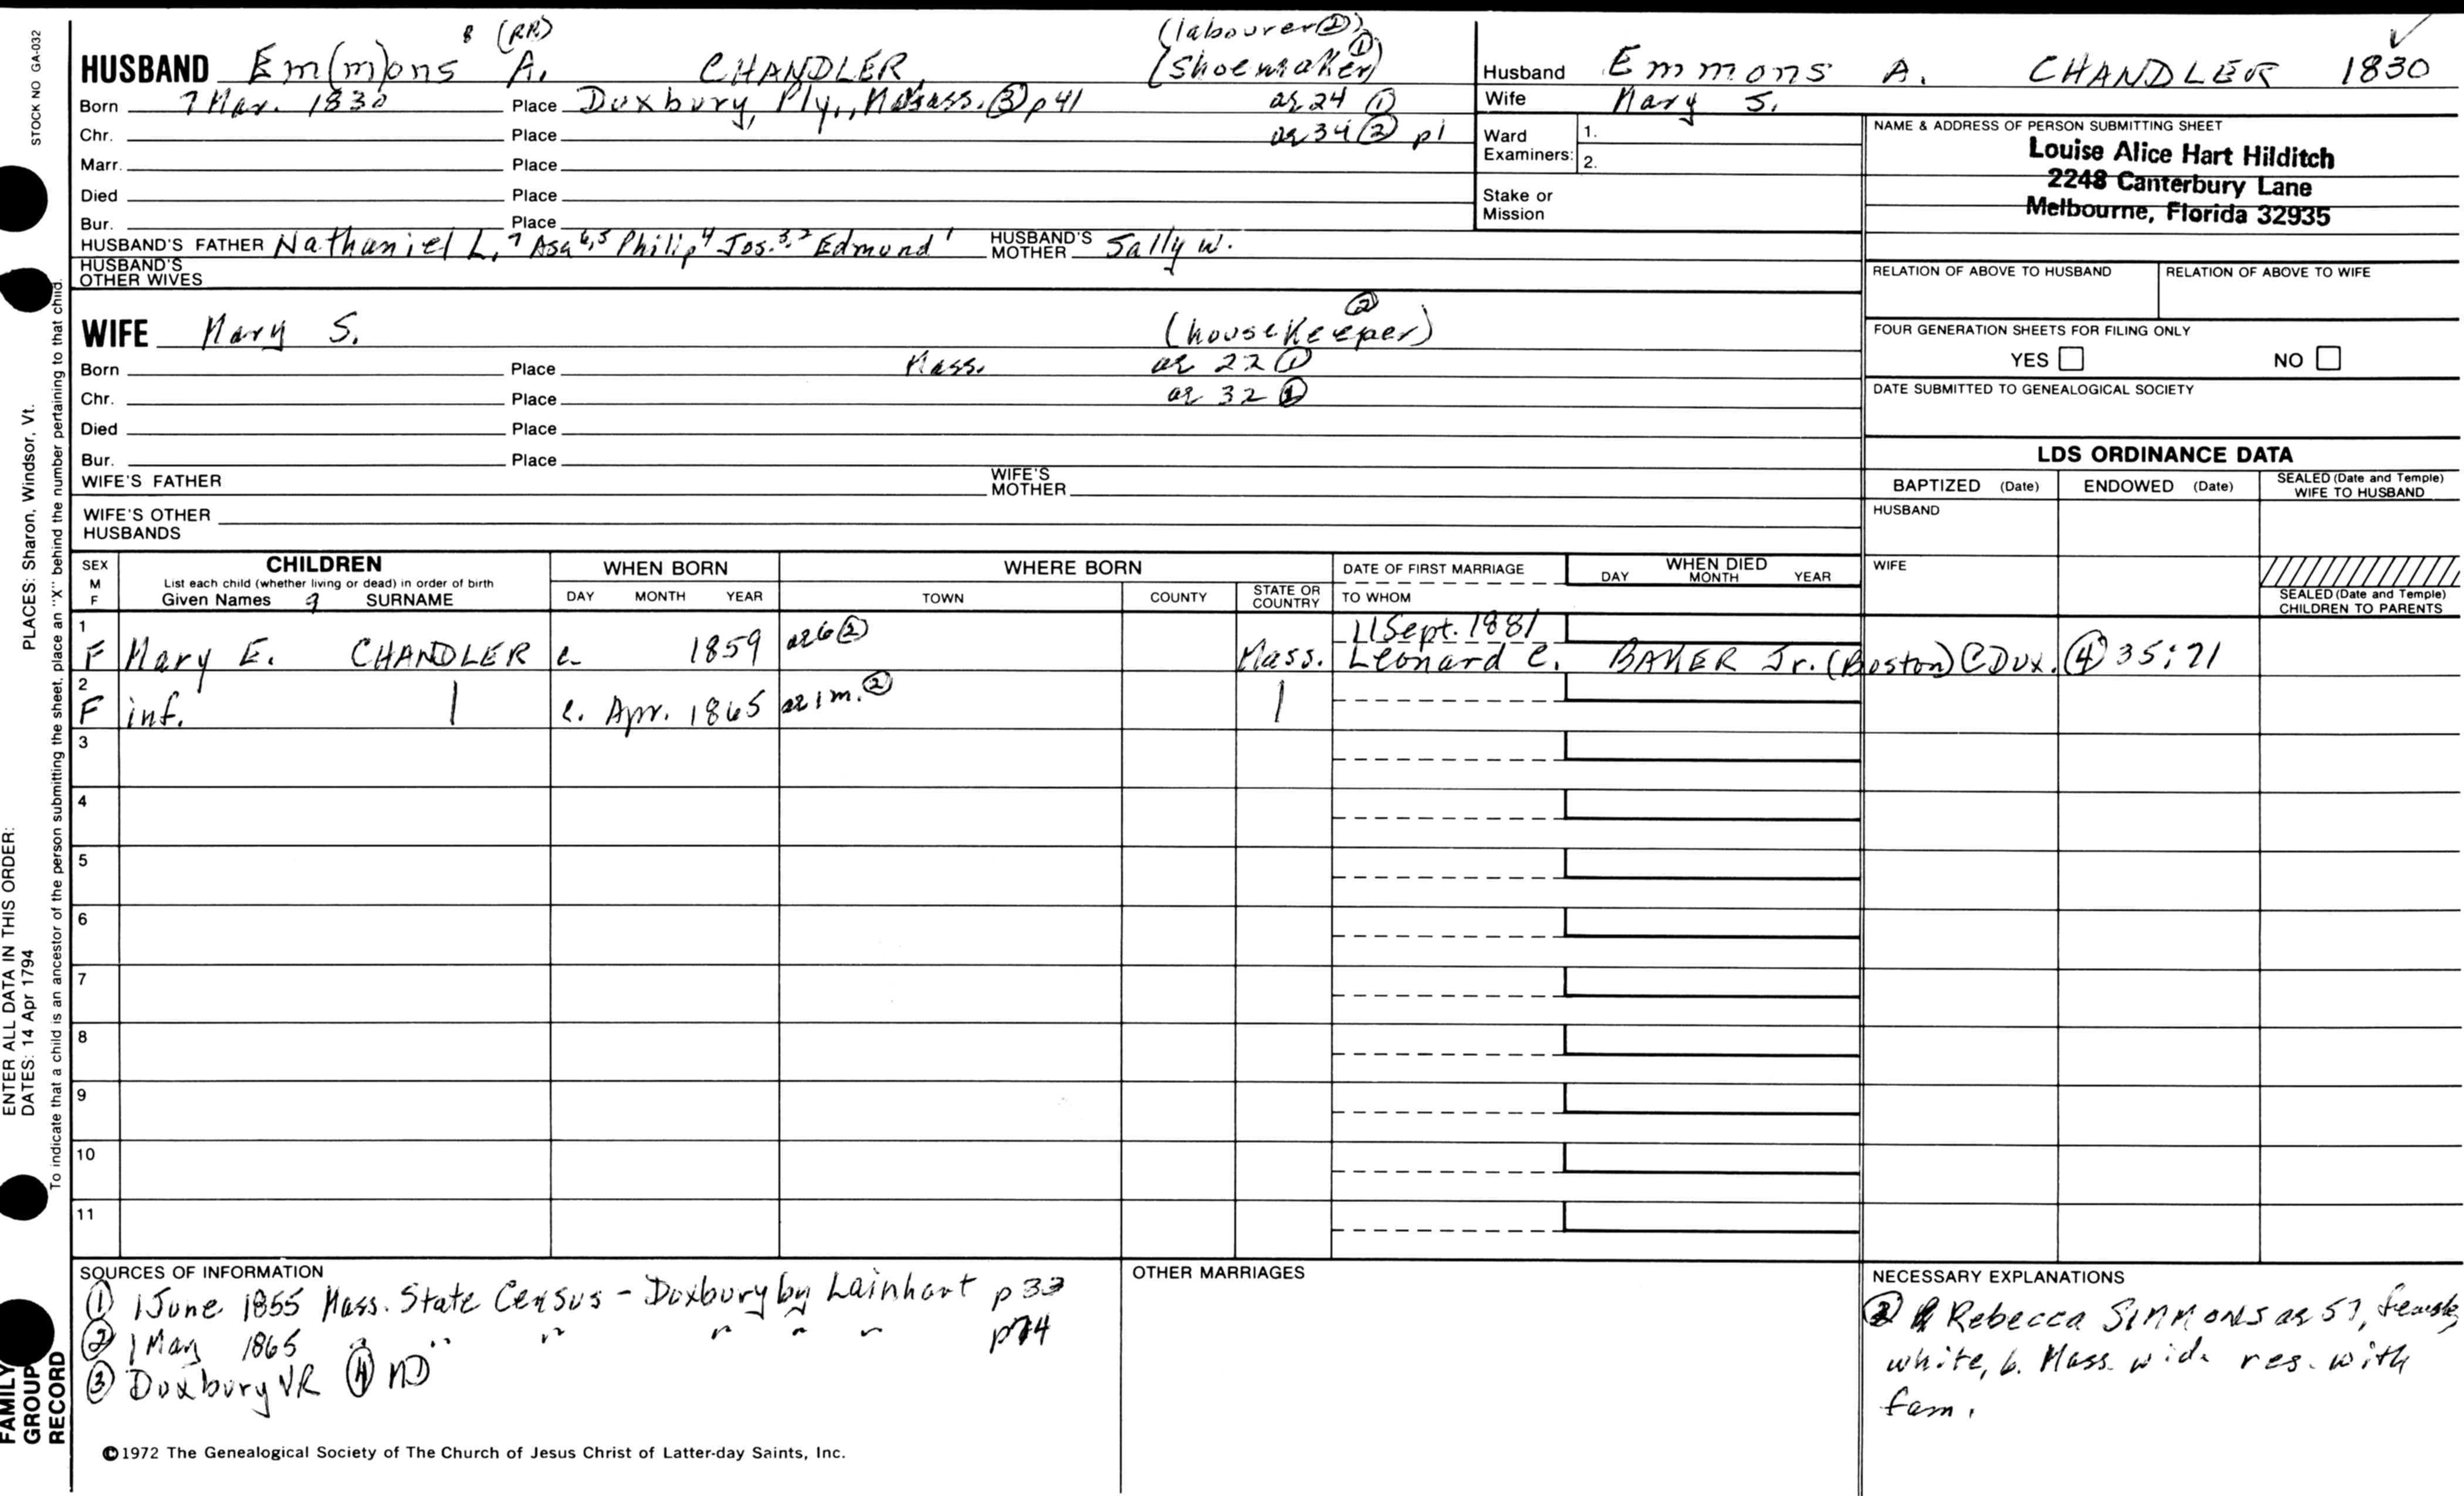 8 (RR) (labourer ②)
HUSBAND Em(m)ons A. CHANDLER, (shoemaker) ①
Born 7 Mar. 1830 Place Duxbury, Ply., Mass. ③ p 41 ae 24 ①
Chr. Place ae 34 ② p1
Marr. Place
Died Place
Bur. Place
HUSBAND'S FATHER Nathaniel L.⁷ Asa⁶,⁵ Philip⁴ Jos.³,² Edmund¹ HUSBAND'S MOTHER Sally W.
HUSBAND'S OTHER WIVES
Husband Emmons A. CHANDLER 1830 ✓
Wife Mary S.
Ward Examiners: 1.
2.
Stake or Mission
NAME & ADDRESS OF PERSON SUBMITTING SHEET
Louise Alice Hart Hilditch
2248 Canterbury Lane
Melbourne, Florida 32935
RELATION OF ABOVE TO HUSBAND RELATION OF ABOVE TO WIFE
FOUR GENERATION SHEETS FOR FILING ONLY
YES NO
DATE SUBMITTED TO GENEALOGICAL SOCIETY
WIFE Mary S. (housekeeper) ②
Born Place Mass. ae 22 ①
Chr. Place ae 32
Died Place
Bur. Place
WIFE'S FATHER WIFE'S MOTHER
WIFE'S OTHER HUSBANDS
LDS ORDINANCE DATA
BAPTIZED (Date) ENDOWED (Date) SEALED (Date and Temple) WIFE TO HUSBAND
HUSBAND
WIFE
SEALED (Date and Temple) CHILDREN TO PARENTS
SEX M F CHILDREN
List each child (whether living or dead) in order of birth
Given Names 9 SURNAME
WHEN BORN
DAY MONTH YEAR
WHERE BORN
TOWN COUNTY STATE OR COUNTRY
DATE OF FIRST MARRIAGE
TO WHOM
WHEN DIED
DAY MONTH YEAR
1 F Mary E. CHANDLER c. 1859 ae 6 ② Mass. 11 Sept. 1881
Leonard C. BAKER Jr. (Boston) @ Dux. ④ 35:71
2 F inf. | c. Apr. 1865 ae 1 m. ② |
3
4
5
6
7
8
9
10
11
SOURCES OF INFORMATION
① 1 June 1855 Mass. State Census - Duxbury by Lainhart p 33
② 1 May 1865 " " " " " " p74
③ Duxbury VR ④ ND
OTHER MARRIAGES
NECESSARY EXPLANATIONS
② Rebecca SIMMONS ae 57, female,
white, b. Mass. wid. res. with
fam.
©1972 The Genealogical Society of The Church of Jesus Christ of Latter-day Saints, Inc.
STOCK NO GA-032
PLACES: Sharon, Windsor, Vt.
To indicate that a child is an ancestor of the person submitting the sheet, place an "X" behind the number pertaining to that child.
ENTER ALL DATA IN THIS ORDER:
DATES: 14 Apr 1794
FAMILY
GROUP
RECORD